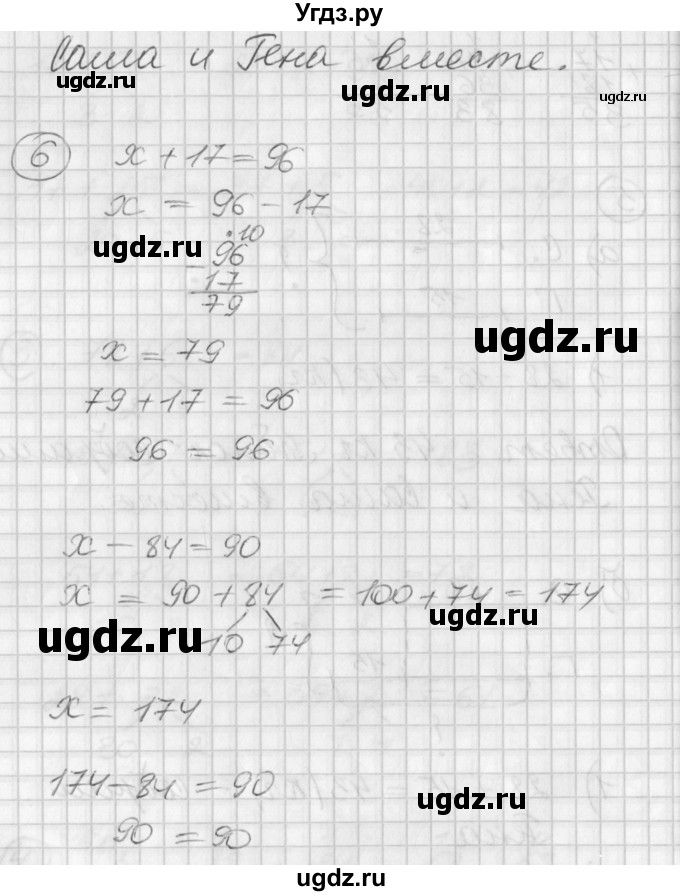 Угдз.ру
Саша и Гена вместе.
ugdz.ru ugdz.ru ugdz.ru
6 x + 17 = 96
x = 96 - 17
ugdz.ru
•10
- 96
17
79
ugdz.ru
x = 79
79 + 17 = 96
96 = 96
x - 84 = 90
x = 90 + 84 = 100 + 74 = 174
ugdz.ru
ugdz.ru 10 74
x = 174
174 - 84 = 90
ugdz.ru
90 = 90
ugdz.ru